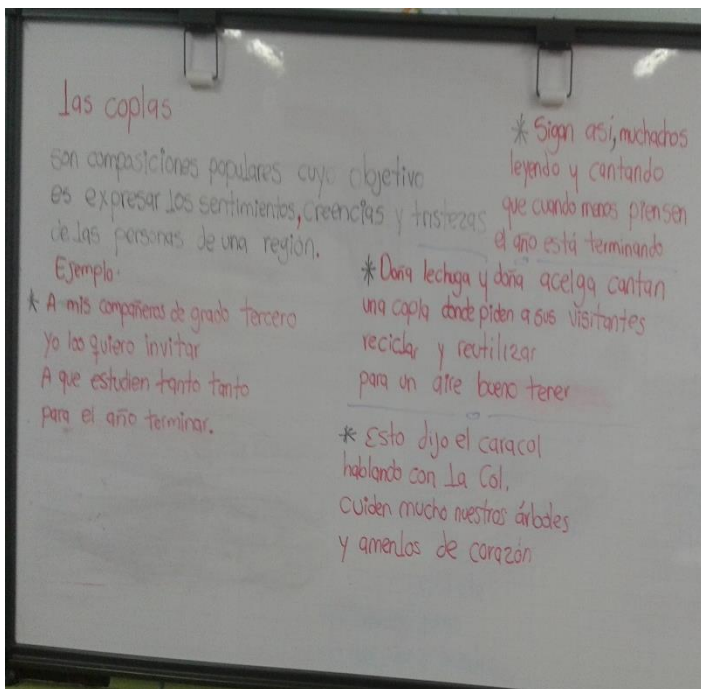 las coplas
son composiciones populares cuyo objetivo
es expresar los sentimientos, creencias y tristezas
de las personas de una región.
Ejemplo.
* A mis compañeros de grado tercero
yo los quiero invitar
A que estudien tanto tanto
para el año terminar.
* Sigan así, muchachos
leyendo y cantando
que cuando menos piensen
el año está terminando
* Doña lechuga y doña acelga cantan
una copla donde piden a sus visitantes
reciclar y reutilizar
para un aire bueno tener
* Esto dijo el caracol
hablando con La Col,
cuiden mucho nuestros árboles
y amenlos de corazón